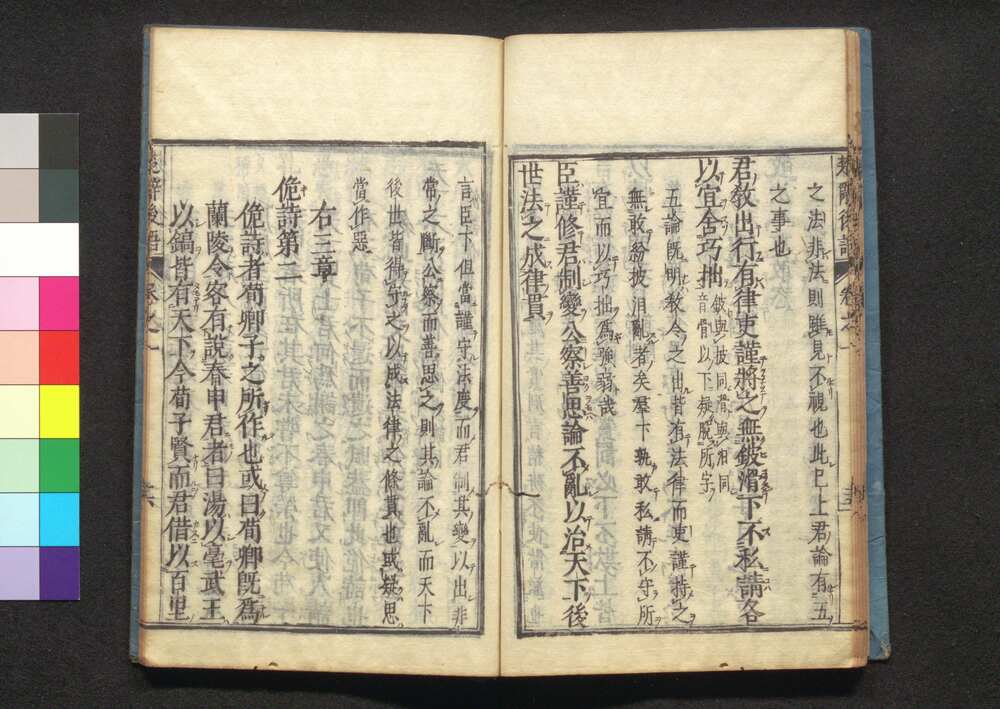 之法非法則雖見不視也此已上君論有五
之事也
君敎出行有律吏謹將之無鈹滑下不私請各
以宜舍巧拙鈹與披同滑與汩同
音骨以下疑脫所字
五論旣明敎令之出皆有法律而吏謹持之
無敢紛披汩亂者矣羣下孰敢私請不守所
宜而以巧拙爲強弱哉
臣謹修君制變公察善思論不亂以治天下後
世法之成律貫
言臣下但當謹守法度而君制其變以出非
常之斷公察而善思之則其論不亂而天下
後世皆得守之以成法律之條貫也或疑思
當作惡
右三章
佹詩第二
佹詩者荀卿子之所作也或曰荀卿旣爲
蘭陵令客有說春申君者曰湯以亳武王
以鎬皆有天下今荀子賢而君借以百里
楚辭後語 卷之一